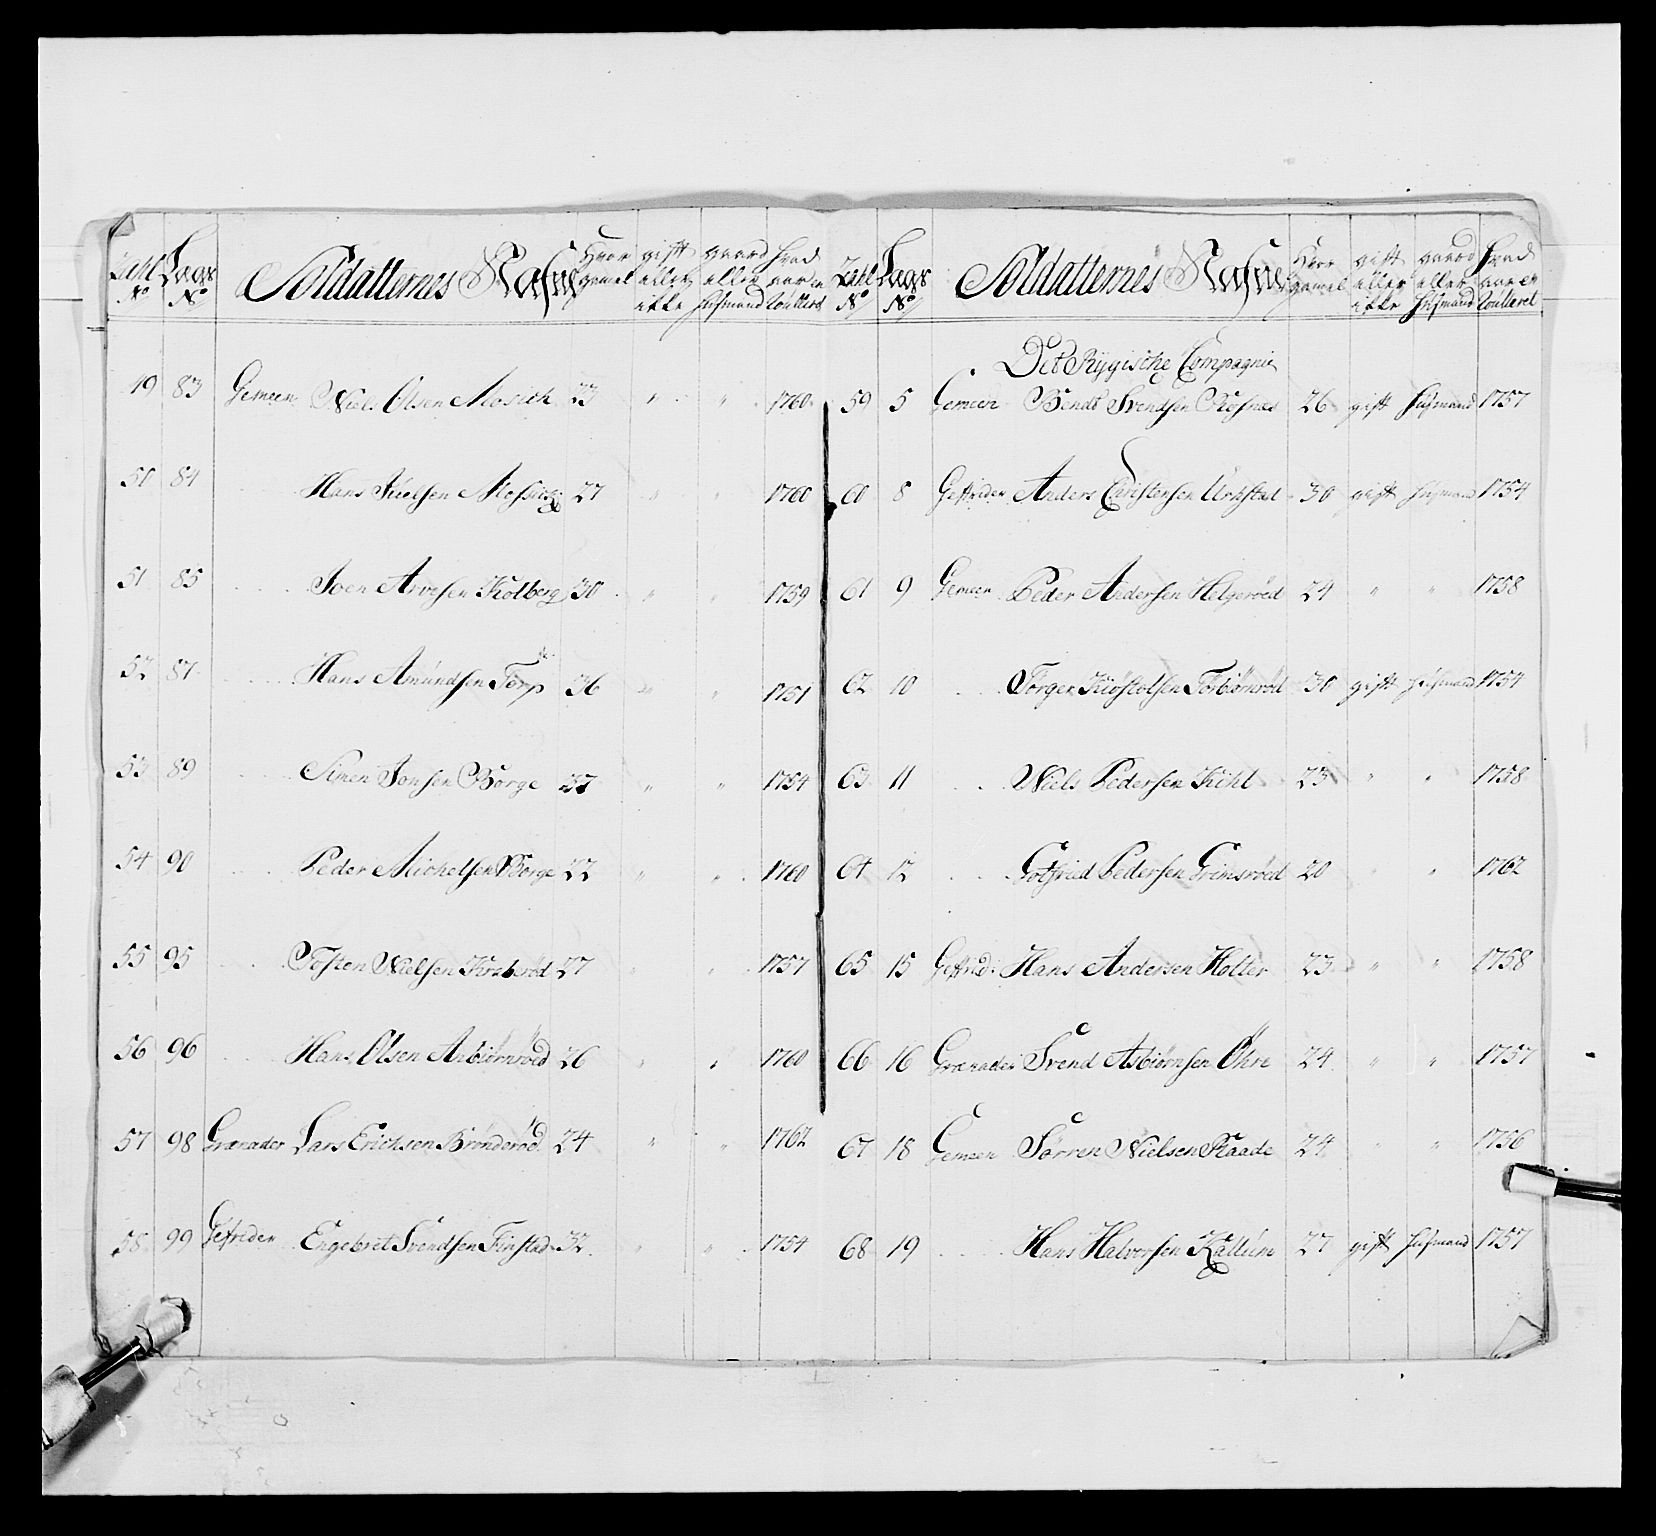 Zahl No Lags No Soldatternes Nafne Hvor gamel gift eller ikke gaard eller husmand hvad aar er Roulleret
19 83 Gemeen Niels Olsen Mosich 23 " " 1760
50 84 Hans Juelsen Mossich 27 " " 1760
51 85 Joen Arvesen Kolberg 30 " " 1759
52 87 Hans Amundsen Torp 36 " " 1751
53 89 Simen Jonsen Borge 37 " " 1754
54 90 Peder Michelsen Borge 22 " " 1760
55 95 Tosten Nielsen Kraberöd 27 " " 1757
56 96 Hans Olsen Anbiörnröed 26 " " 1760
57 98 Grenader Lars Erichsen Brönderöd 24 " " 1762
58 99 Gefreder Engebret Svendsen Finstad 32 " " 1754
Zahl No Lags No Soldatternes Nafne Hvor gamel gift eller ikke gaard eller husmand hvad aar er Roulleret
Det Rygische Compagnie
59 5 Gemeen Bendt Svendsen Rosnes 26 gift husmand 1757
60 8 Geffrider Anders Christensen Urkstad 30 gift husmand 1754
61 9 Gemeen Peder Andersen Helgeröed 24 " " 1758
62 10 Törger Kiöstolsen Torbiörnröd 30 gift husmand 1754
63 11 Niels Pedersen Kihl 23 " " 1758
64 12 Gotfried Pedersen Grimsröed 20 " " 1762
65 15 Geffrid: Hans Andersen Holter 23 " " 1758
66 16 Grenader Svend Asbiörnsen Öhre 24 " " 1757
67 18 Gemeen Sörren Nielsen Raade 24 " " 1756
68 19 Hans Halvorsen Kallum 27 gift husmand 1757